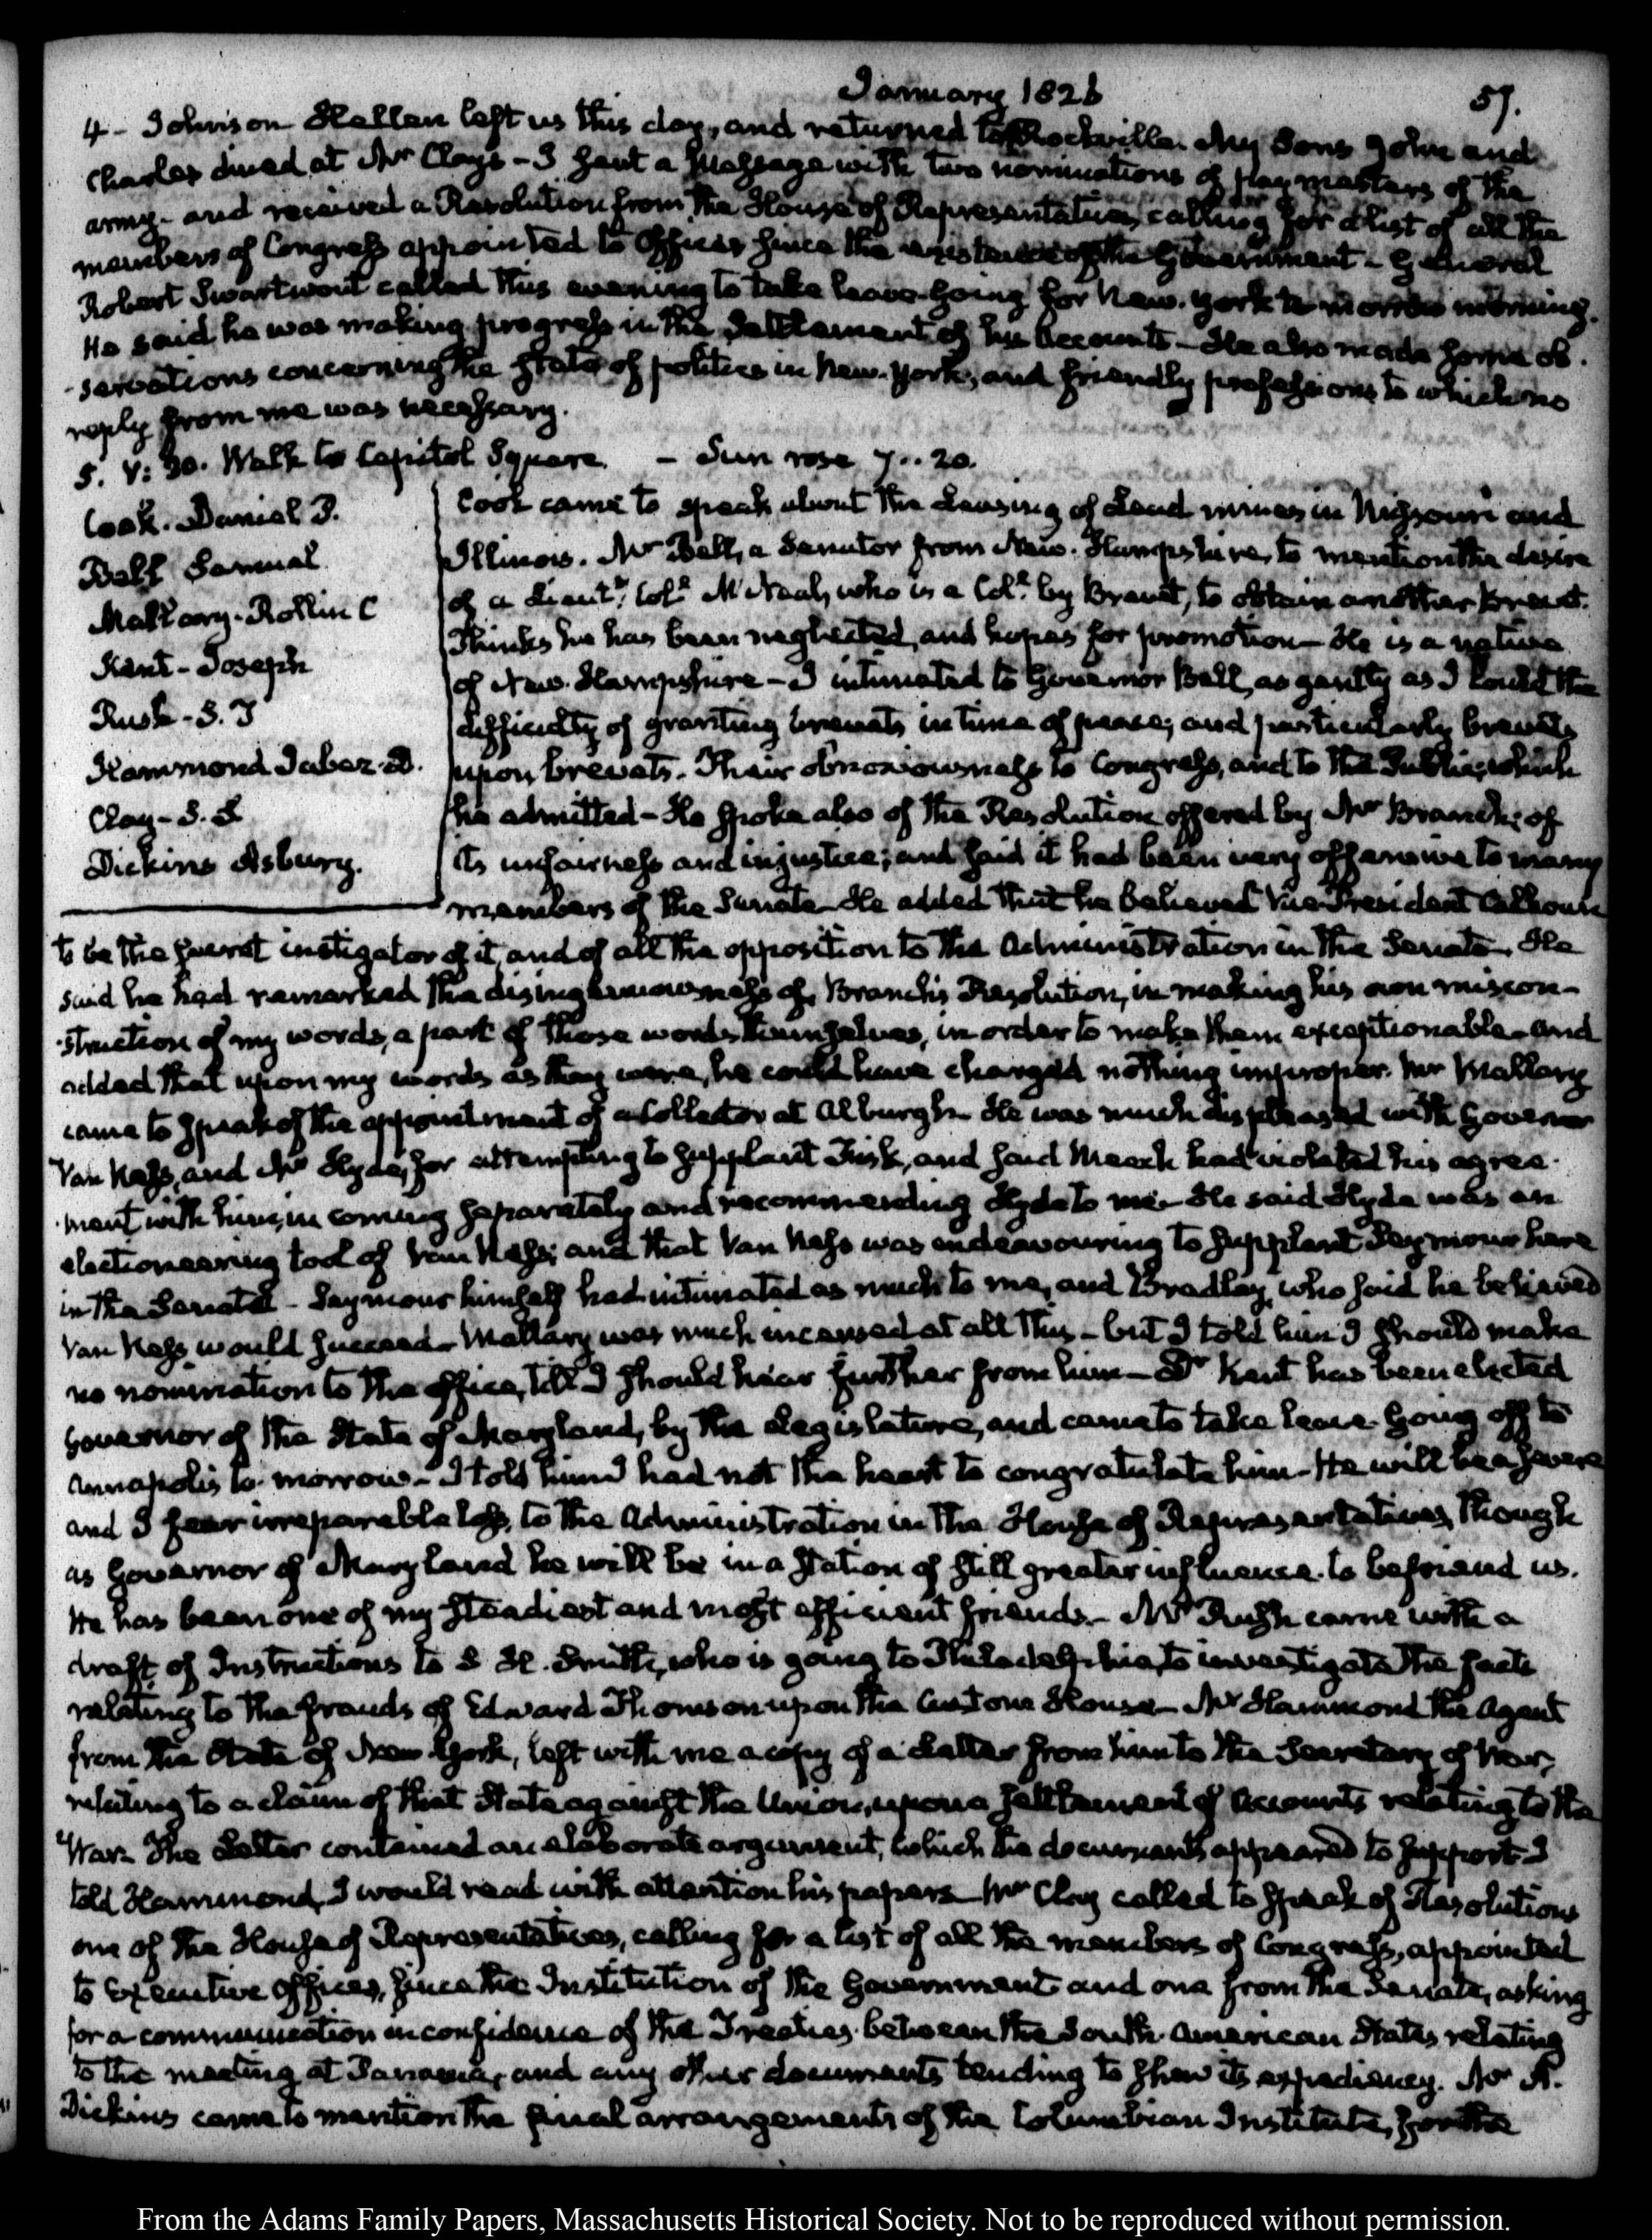 January 1826
57.
4 - Johnson Hellen left us this day, and returned to Rockville. My Sons John and
Charles dined at Mr Clays - I sent a Message with two nominations of paymasters of the
army - and received a Resolution from the House of Representatives, calling for a list of all the
members of Congress appointed to Offices since the existence of the Government - General
Robert Swartwout called this evening to take leave. Going for New-York to morrow morning.
He said he was making progress in the Settlement of his Accounts - He also made some ob-
-servations concerning the State of politics in New-York, and friendly professions to which no
reply from me was necessary.
5. V: 30. Walk to Capitol Square. - Sun rose 7..20.
Cook. Daniel P.
Bell Samuel
Mallary. Rollin C
Kent - Joseph
Rush - S. T
Hammond Jabez. D.
Clay - S. S
Dickins Asbury.
Cook came to speak about the Leasing of Lead mines in Missouri and
Illinois. Mr Bell, a Senator from New-Hampshire, to mention the desire
of a Lieutt. Coll. McNeal, who is a Coll. by Brevet, to obtain another brevet.
Thinks he has been neglected, and hopes for promotion - He is a native
of New-Hampshire - I intimated to Governor Bell, as gently as I could the
difficulty of granting brevets in time of peace; and particularly brevets
upon brevets. Their obnoxiousness to Congress, and to the Public; which
he admitted - He spoke also of the Resolution offered by Mr Branch; of
its unfairness and injustice; and said it had been very offensive to many
members of the Senate - He added that he believed Vice-President Calhoun
to be the secret instigator of it, and of all the opposition to the Administration in the Senate. He
said he had remarked the disingenuousness of Branch's Resolution, in making his own miscon-
-struction of my words, a part of those words themselves, in order to make them exceptionable - and
added that upon my words as they were, he could have charged nothing improper. Mr Mallary
came to speak of the appointment of a Collector at Alburgh - He was much displeased with Governor
Van Ness, and Mr Hyde, for attempting to supplant Fisk, and said Meech had violated his agree-
-ment with him, in coming separately and recommending Hyde to me - He said Hyde was an
electioneering tool of Van Ness; and that Van Ness was endeavouring to supplant Seymour here
in the Senate - Seymour himself had intimated as much to me, and Bradley, who said he believed
Van Ness would succeed - Mallary was much incensed at all this - but I told him I should make
no nomination to the office, till I should hear further from him - Dr Kent has been elected
Governor of the State of Maryland, by the Legislature, and came to take leave. Going off to
Annapolis to-morrow - I told him I had not the heart to congratulate him - He will be a severe
and I fear irreparable loss, to the Administration in the House of Representatives, though
as Governor of Maryland he will be in a Station of still greater influence to befriend us.
He has been one of my steadiest and most efficient friends - Mr Rush came with a
draft of Instructions to S H. Smith, who is going to Philadelphia, to investigate the facts
relating to the frauds of Edward Thomson upon the Custom House - Mr Hammond the Agent
from the State of New-York, left with me a copy of a Letter from him to the Secretary of War,
relating to a claim of that State against the Union, upon a Settlement of Accounts relating to the
War. The Letter contained an elaborate argument, which the documents appeared to support. I
told Hammond, I would read with attention his papers - Mr Clay called to speak of Resolutions
one of the House of Representatives, calling for a list of all the members of Congress, appointed
to Executive Offices, since the Institution of the Government and one from the Senate, asking
for a communication in confidence of the Treaties between the South-American States relating
to the meeting at Panama, and any other documents tending to shew its expediency. Mr A.
Dickins came to mention the final arrangements of the Columbian Institute, for the
From the Adams Family Papers, Massachusetts Historical Society. Not to be reproduced without permission.